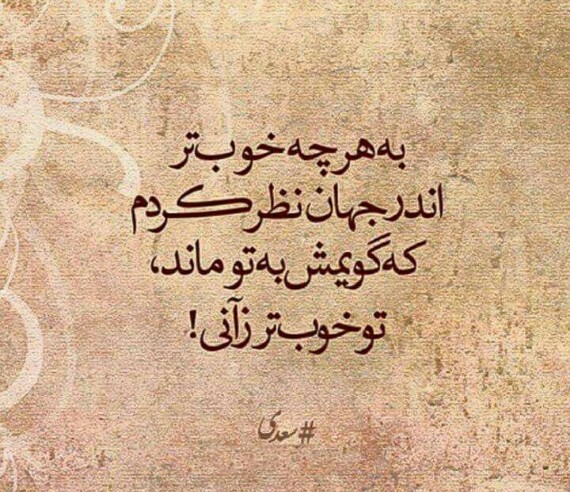 به هر چه خوب‌تر
اندر جهان نظر کردم
که گویمش به تو ماند،
تو خوب‌تر زآنی!
#سعدی